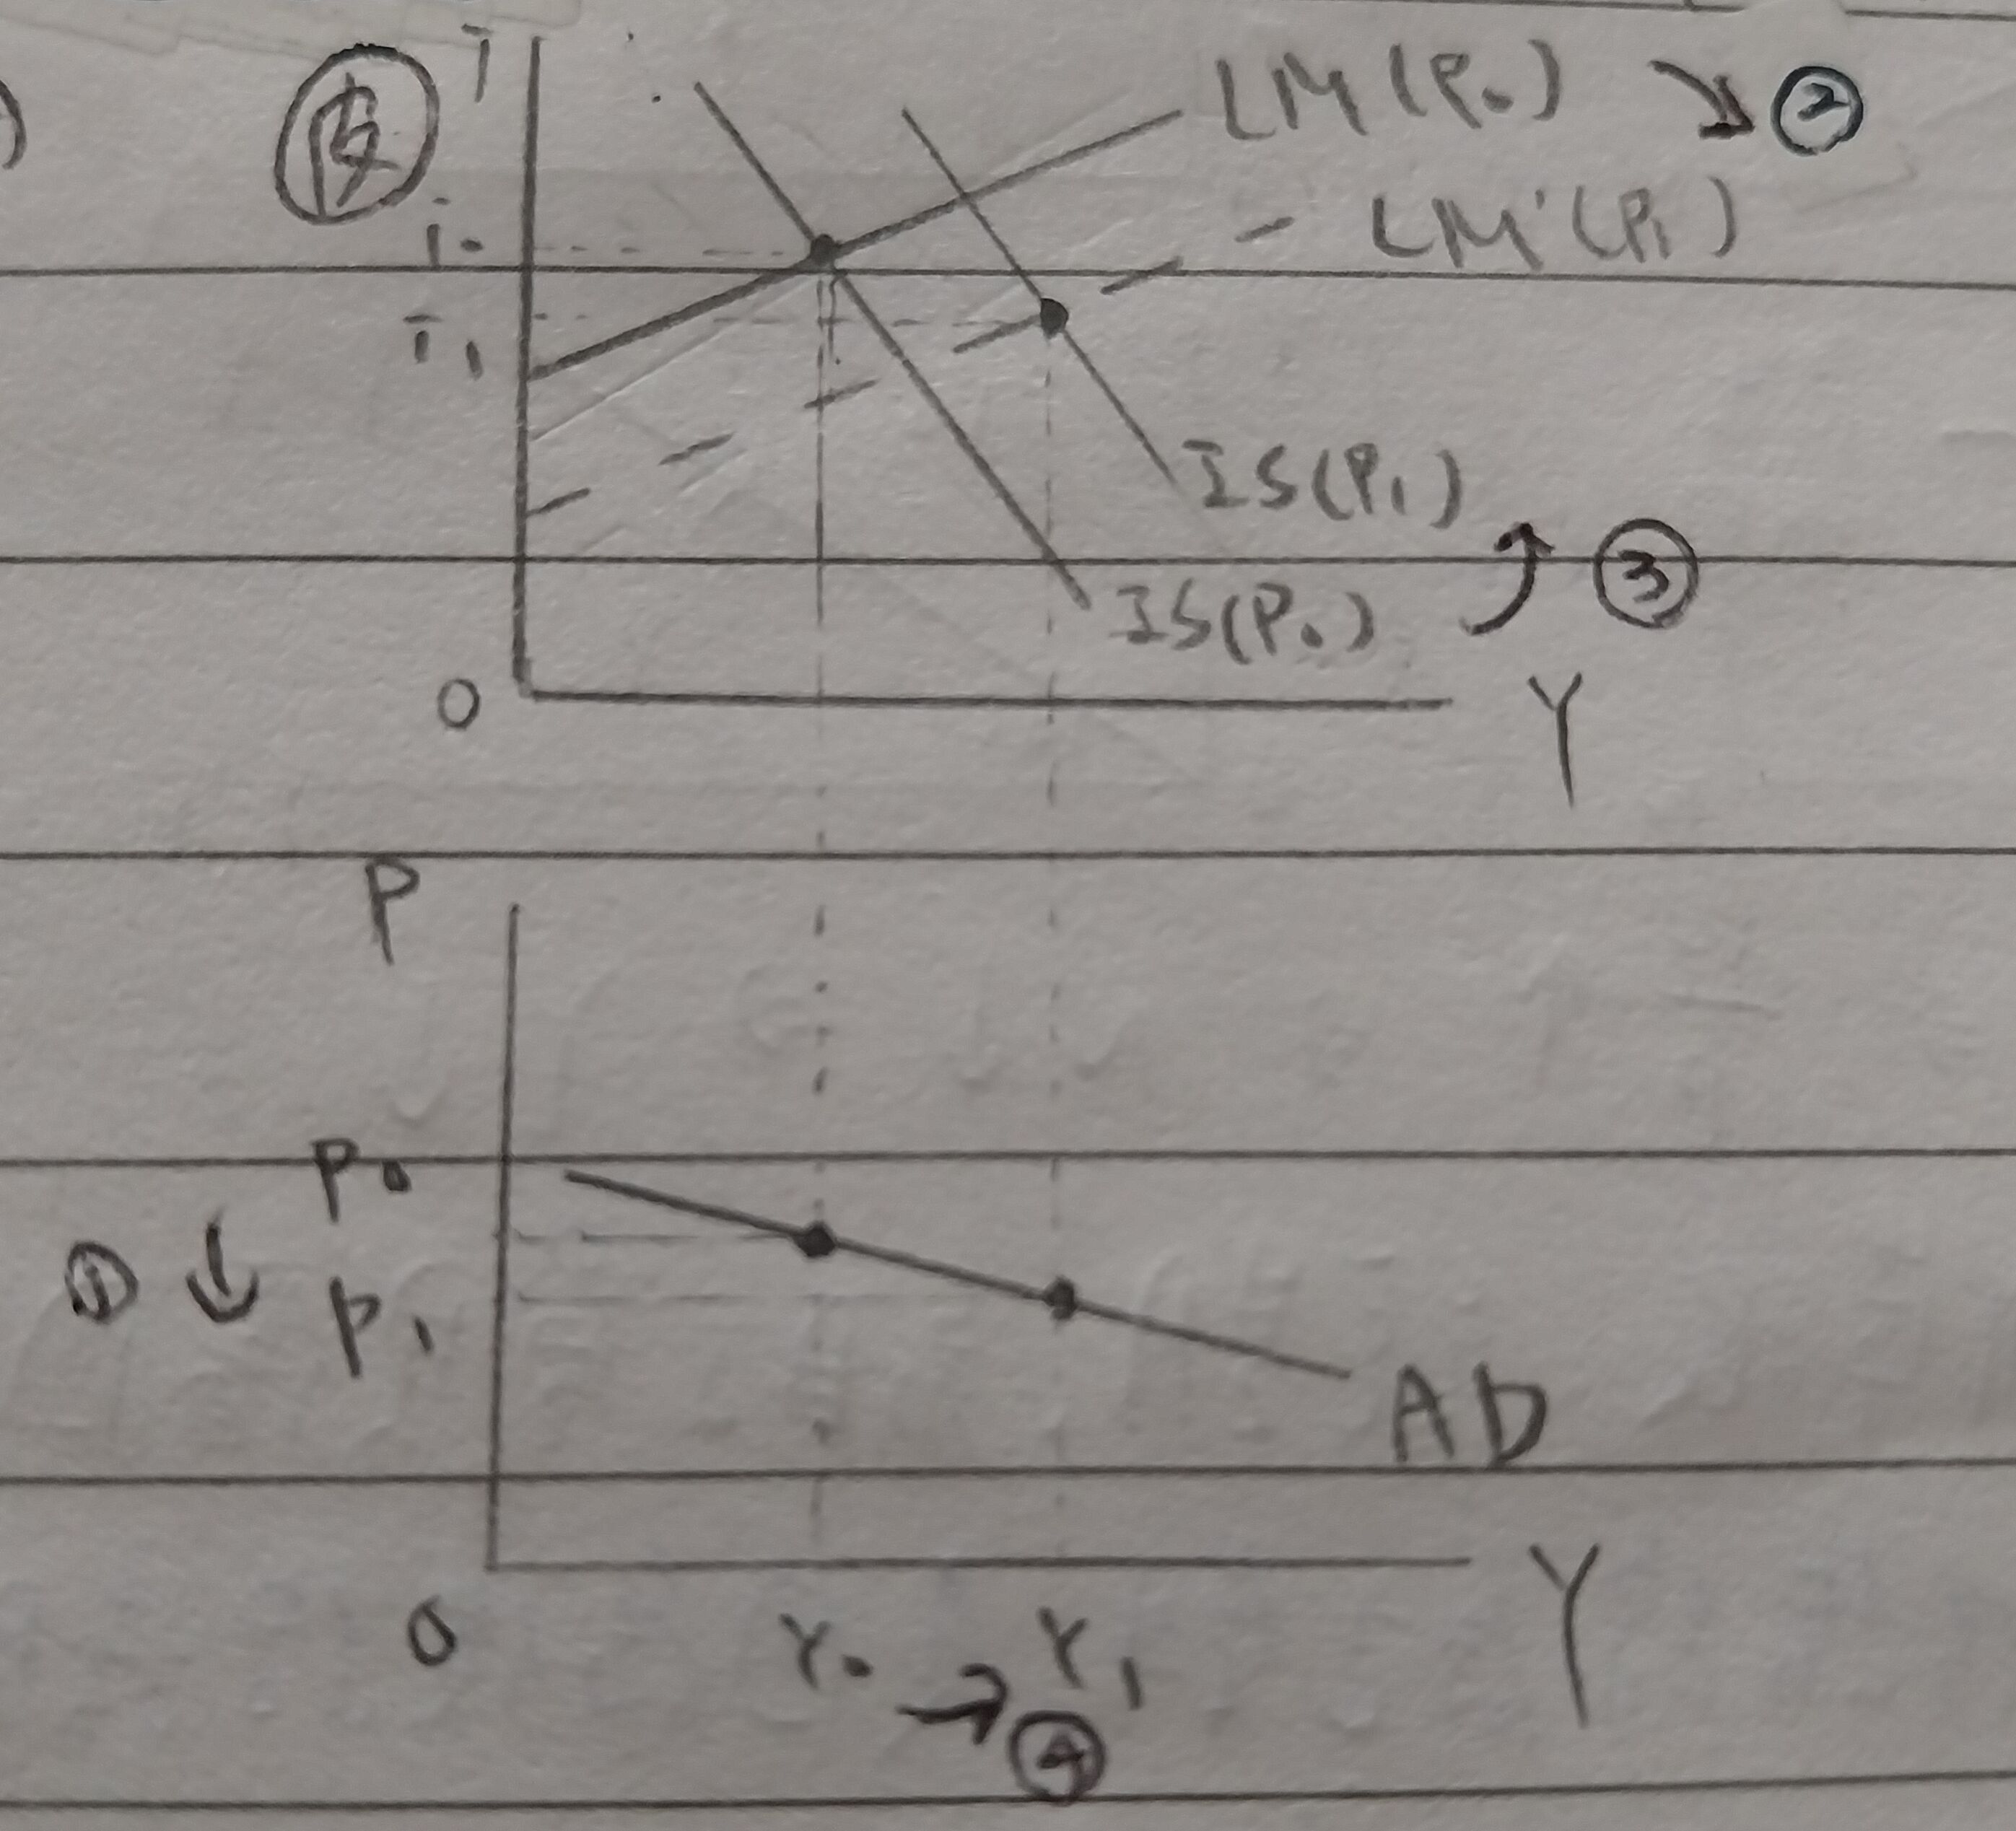 皮
i
LM (P₀) ②
i₀
LM'(P₁)
i₁
IS(P₁)
③
IS(P₀)
0
Y
P
P₀
① P₁
AD
0
Y₀ Y₁ Y
④